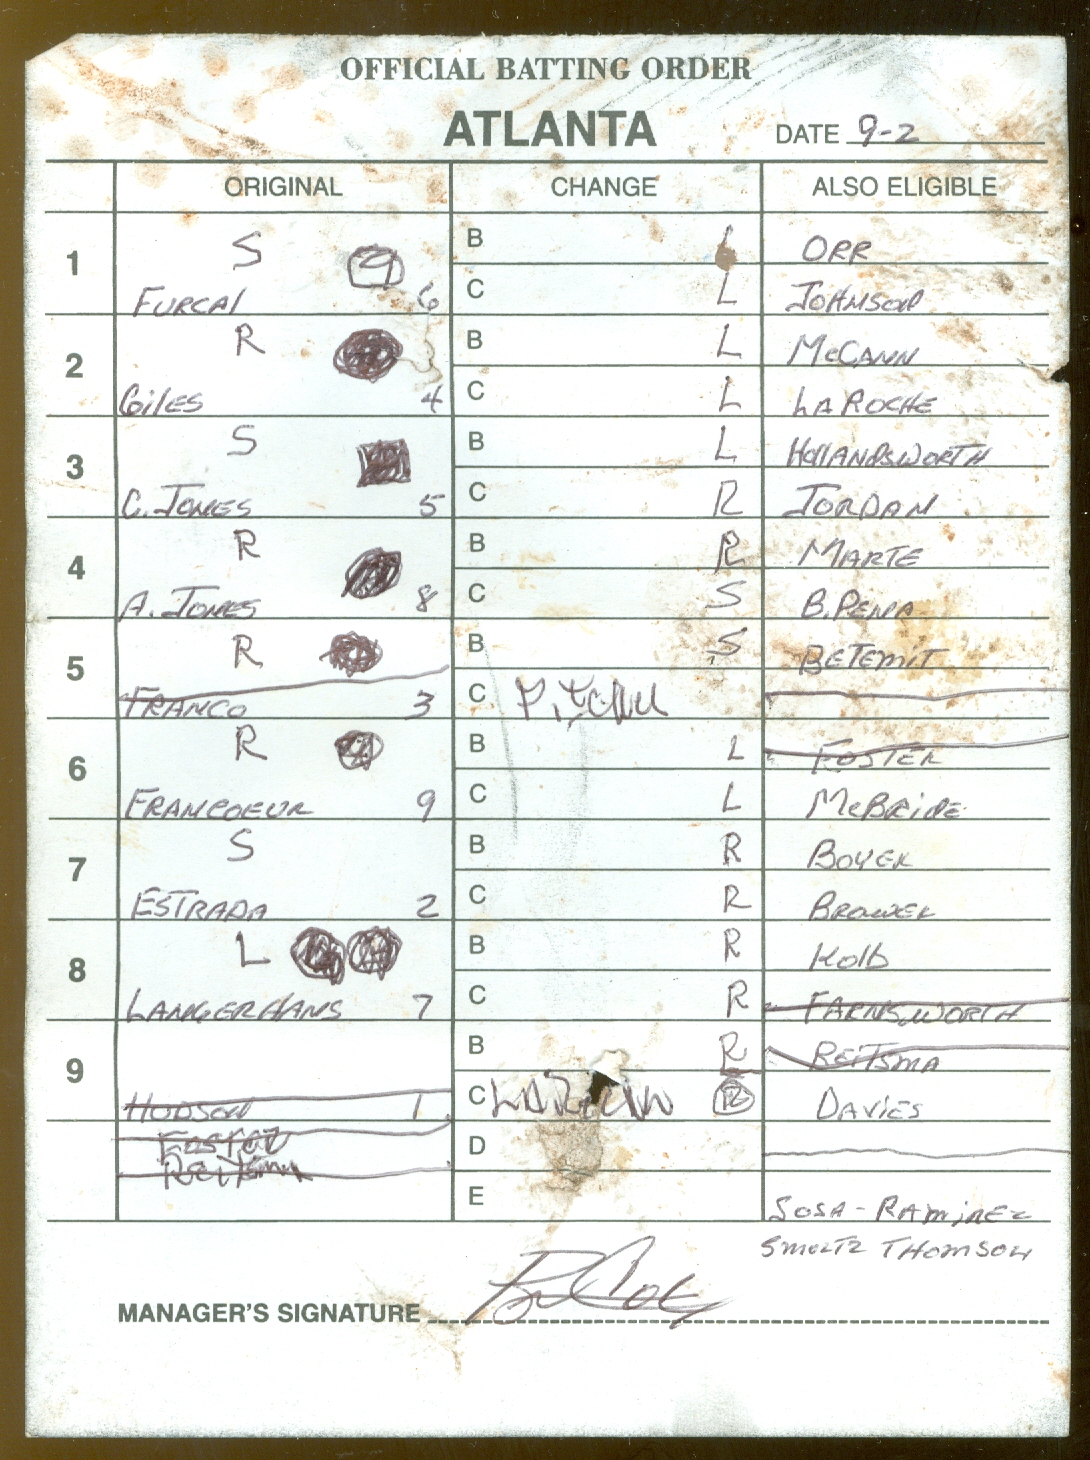 OFFICIAL BATTING ORDER
ATLANTA
DATE 9-2
ORIGINAL CHANGE ALSO ELIGIBLE
1 S B L ORR
FURCAL 6 C L JOHNSON
2 R B L McCANN
GILES 4 C L LAROCHE
3 S B L HOLLANDSWORTH
C. JONES 5 C R JORDAN
4 R B R MARTE
A. JONES 8 C S B. PENA
5 R B S BETEMIT
FRANCO 3 C
6 R B L FOSTER
FRANCOEUR 9 C L McBRIDE
7 S B R BOYER
ESTRADA 2 C R BROWER
8 L B R KOLB
LANGERHANS 7 C R FARNSWORTH
9 B R REITSMA
HUDSON 1 C R DAVIES
FOSTER D
REITSMA E
SOSA - RAMIREZ
SMOLTZ THOMSON
MANAGER'S SIGNATURE